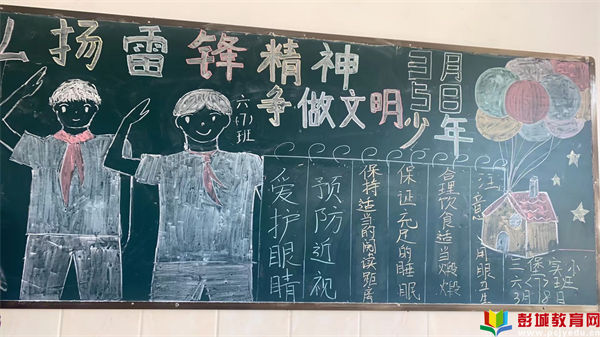 扬雷锋精神
争做文明少年
3月5日
六(7)班
爱护眼睛
预防近视
保持适当的阅读距离
保证充足的睡眠
合理饮食适当煅煅
注意用眼卫生
彭城教育网